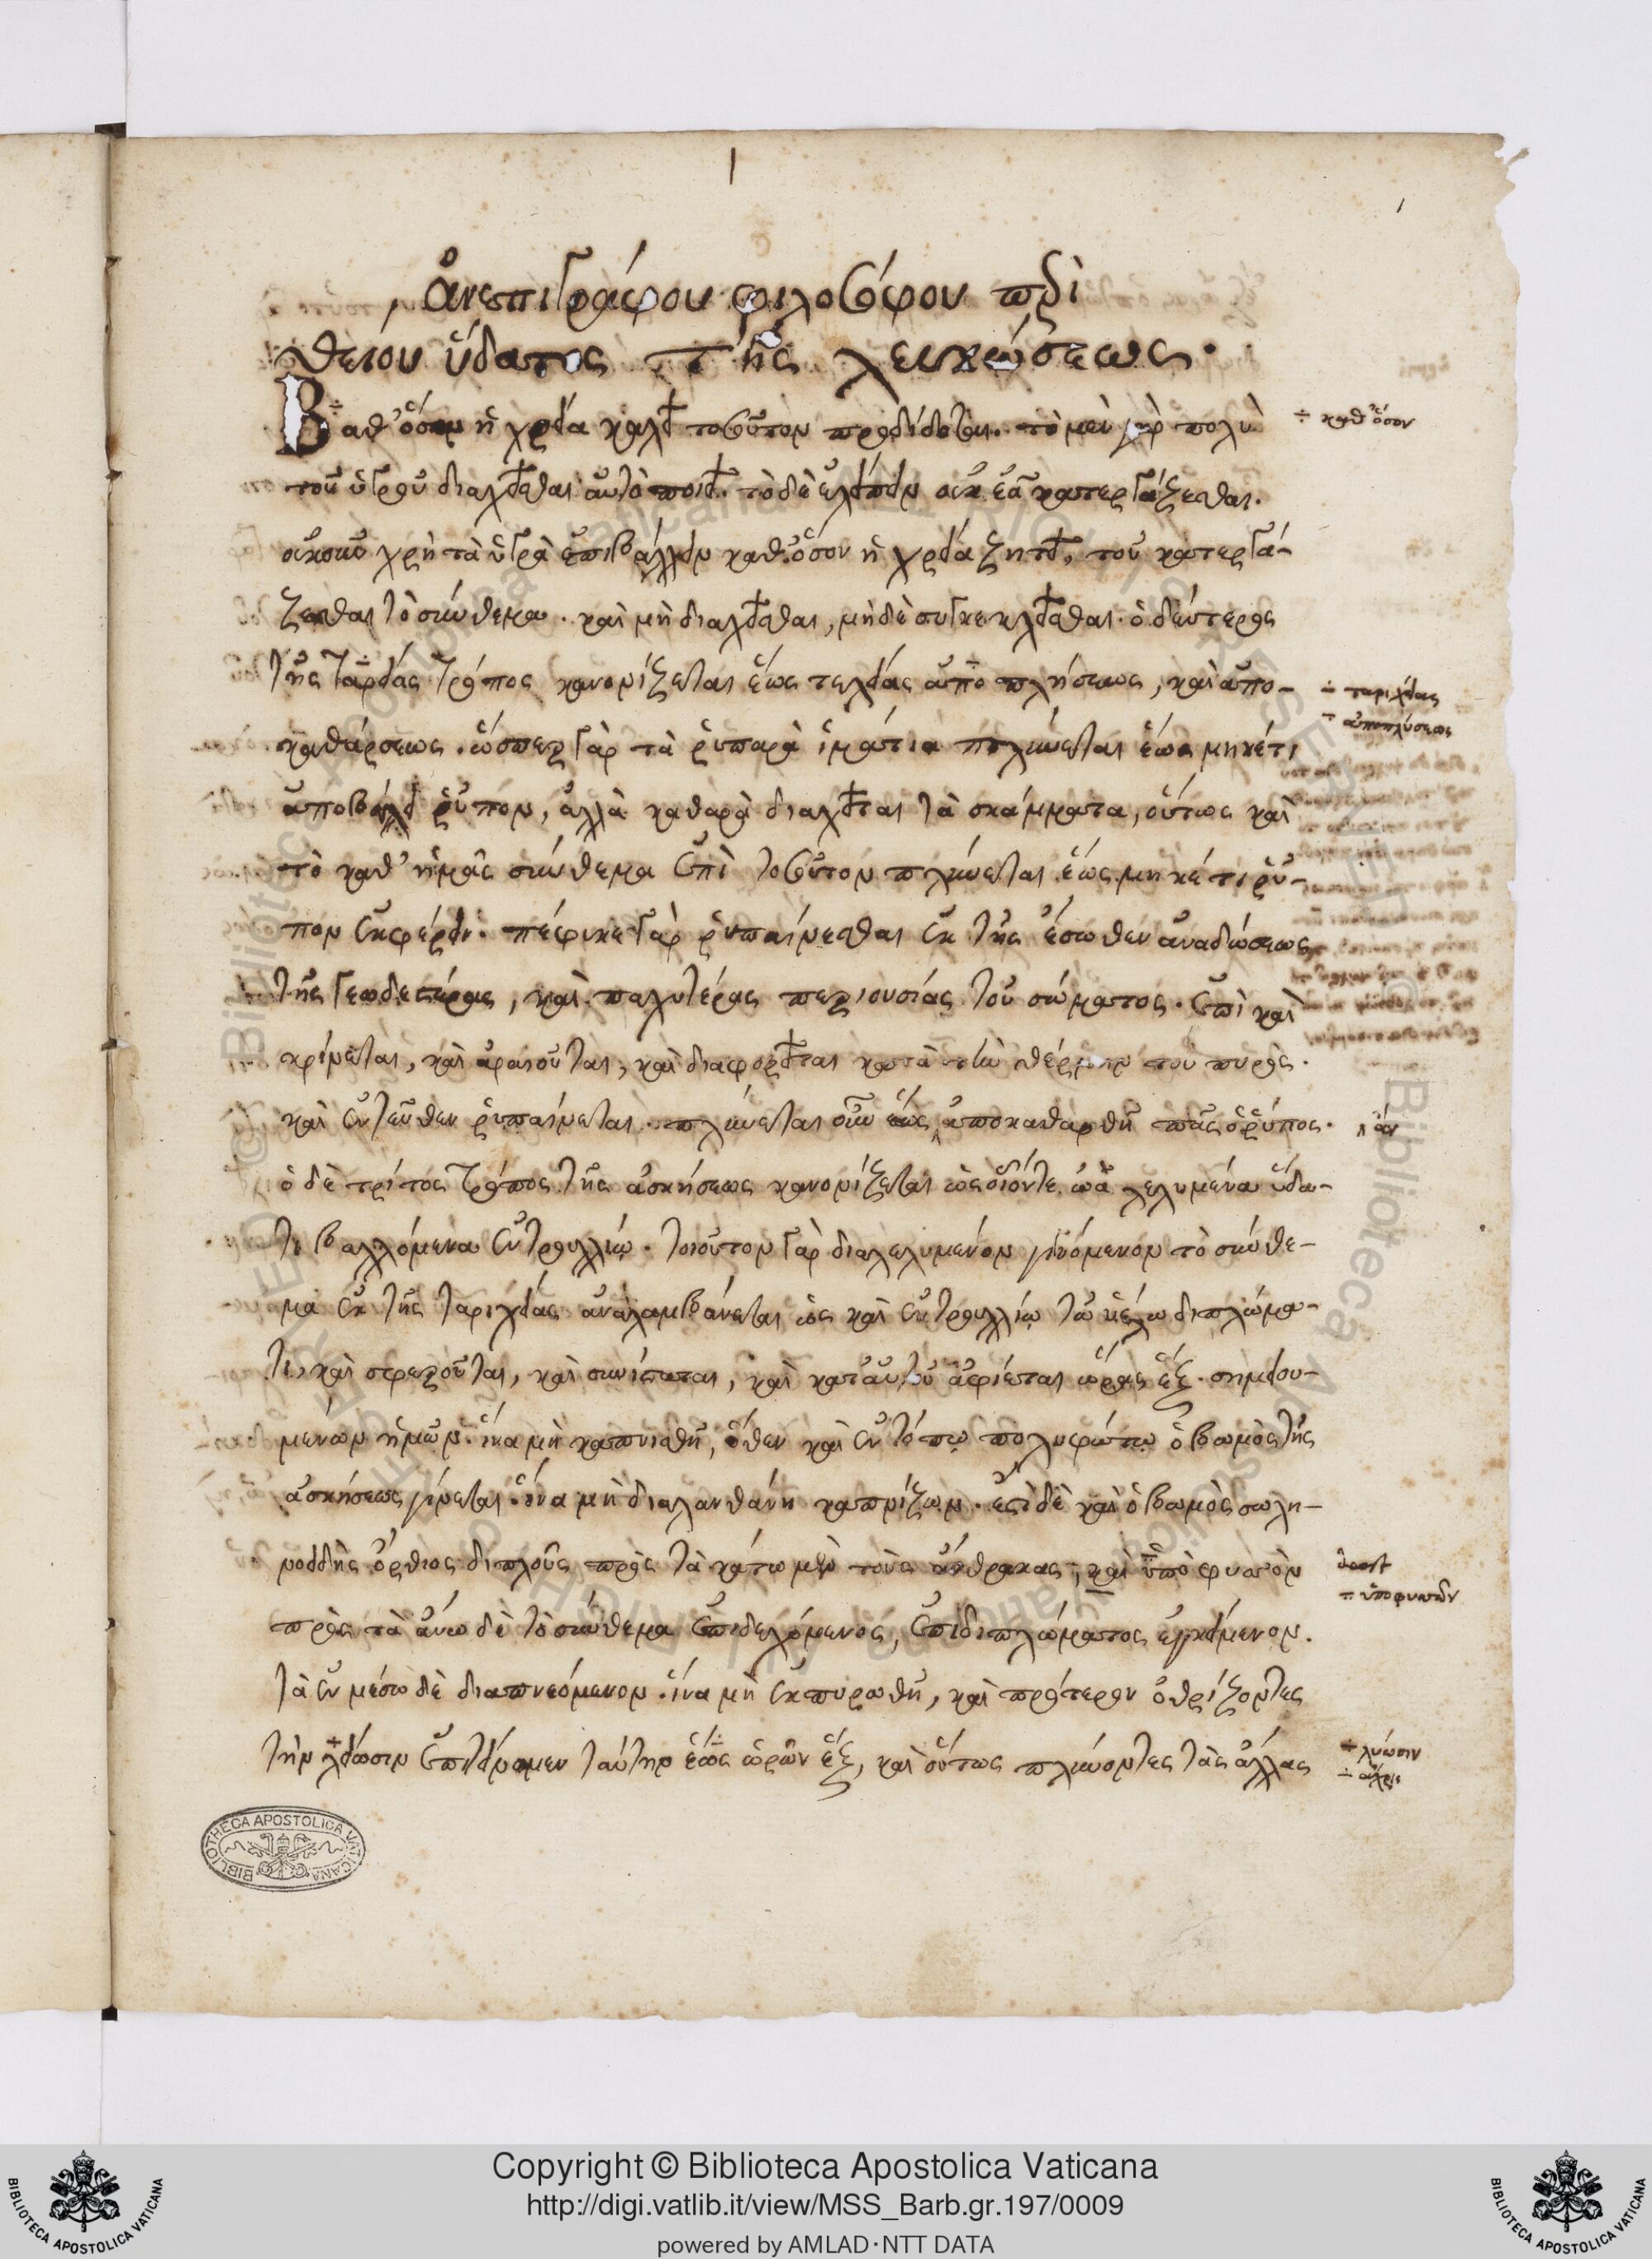 1
1
ἀνεπιγράφου φιλοσόφου περὶ
θείου ὕδατος τῆς λευκώσεως.
Βαθ' ὅσον ἡ χρεία καλεῖ τοσοῦτον προσδίδοσθαι. τὸ μὲν γὰρ πολὺ
τοῦ ὑγροῦ διαχεῖσθαι αὐτὸ ποιεῖ. τὸ δὲ ἐλλεῖπον οὐκ ἐᾷ κατεργάζεσθαι.
οὐκοῦν χρὴ τὰ ὑγρὰ ἐπιβάλλειν καθ' ὅσον ἡ χρεία ζητεῖ, τοῦ κατεργά-
ζεσθαι τὸ σύνθεμα. καὶ μὴ διαχεῖσθαι, μὴ δὲ συγκεκλεῖσθαι. ὁ δεύτερος
τῆς ταρείας τρόπος κανονίζεται ἕως τελείας ἀπὸ πλήσεως, καὶ ἀπο-
καθάρσεως. ὥσπερ γὰρ τὰ ῥυπαρὰ ἱμάτια πλύνεται ἕως μηκέτι
ἀποβάλλει ῥύπον, ἀλλὰ καθαρὰ διαχεῖται τὰ σκάμματα, οὕτως καὶ
τὸ καθ' ἡμᾶς σύνθεμα ἐπὶ τοσοῦτον πλύνεται ἕως μηκέτι ῥύ-
πον ἐκφέρειν. πέφυκε γὰρ ῥυπαίνεσθαι ἐκ τῆς ἔσωθεν ἀναδώσεως
τῆς γεωδεστέρας, καὶ παχυτέρας περιουσίας τοῦ σώματος. ἐπὶ καὶ
κρίνεται, καὶ ἀραιοῦται, καὶ διαφορεῖται κατὰ τὴν θέρμην τοῦ πυρὸς.
καὶ ἐντεῦθεν ῥυπαίνεται. πλύνεται οὖν ἕως ἀποκαθαρθῇ πᾶς ὁ ῥύπος.
ὁ δὲ τρίτος τρόπος τῆς ἀσκήσεως κανονίζεται ὡς οἷόν τε ὠὰ λελυμένα ὕδα-
τι βαλλόμενα ἐν τρουλλίῳ. τοιοῦτον γὰρ διαλελυμένον γινόμενον τὸ σύνθε-
μα ἐκ τῆς ταριχείας ἀναλαμβάνεται ὡς καὶ ἐν τρουλλίῳ τῷ ὑέλῳ διπλώμα-
τι, καὶ στρεροῦται, καὶ συνίσταται, καὶ κατ' αὐτοῦ ἀφίεται ὥρας ἕξ. σημειου-
μένων ἡμῶν. ἵνα μὴ καπνισθῇ, ὅθεν καὶ ἐν τόπῳ πολυφώτῳ ὁ βωμὸς τῆς
ἀσκήσεως γίνεται. ἵνα μὴ διαλανθάνῃ καπνίζων. ἐστὶ δὲ καὶ ὁ βωμὸς σωλη-
νοειδὴς ὄρθιος διπλοῦς πρὸς τὰ κάτω μὲν τοὺς ἄνθρακας, καὶ ὑπὸ ερυσιὸν
πρὸς τὰ ἄνω δὲ τὸ σύνθεμα ἐπιδεχόμενος, ἐπὶ διπλώματος ἐγκείμενον.
τὰ ἐν μέσῳ δὲ διαπνεόμενον. ἵνα μὴ ἐκπυρωθῇ, καὶ πρότερον ὀθρίζοντες
τὴν λείωσιν ἐπιτείνομεν ταύτην ἕως ὡρῶν ἕξ, καὶ οὕτως πλύνοντες τὰς ἄλλας
÷ καθ' ὅσον
÷ ταριχείας
÷ ἀποπλύσεως
ἂν
÷ λύωσιν
÷ ἄχρις
BIBLIOTHECA APOSTOLICA VATICANA
Copyright © Biblioteca Apostolica Vaticana
http://digi.vatlib.it/view/MSS_Barb.gr.197/0009
powered by AMLAD·NTT DATA
BIBLIOTECA APOSTOLICA VATICANA
BIBLIOTECA APOSTOLICA VATICANA